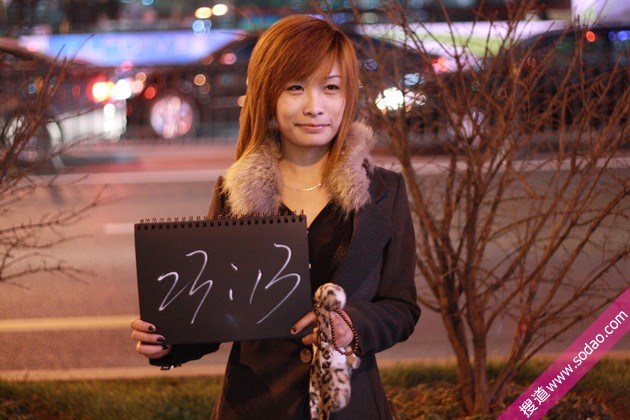 23:13
搜道www.sodao.com